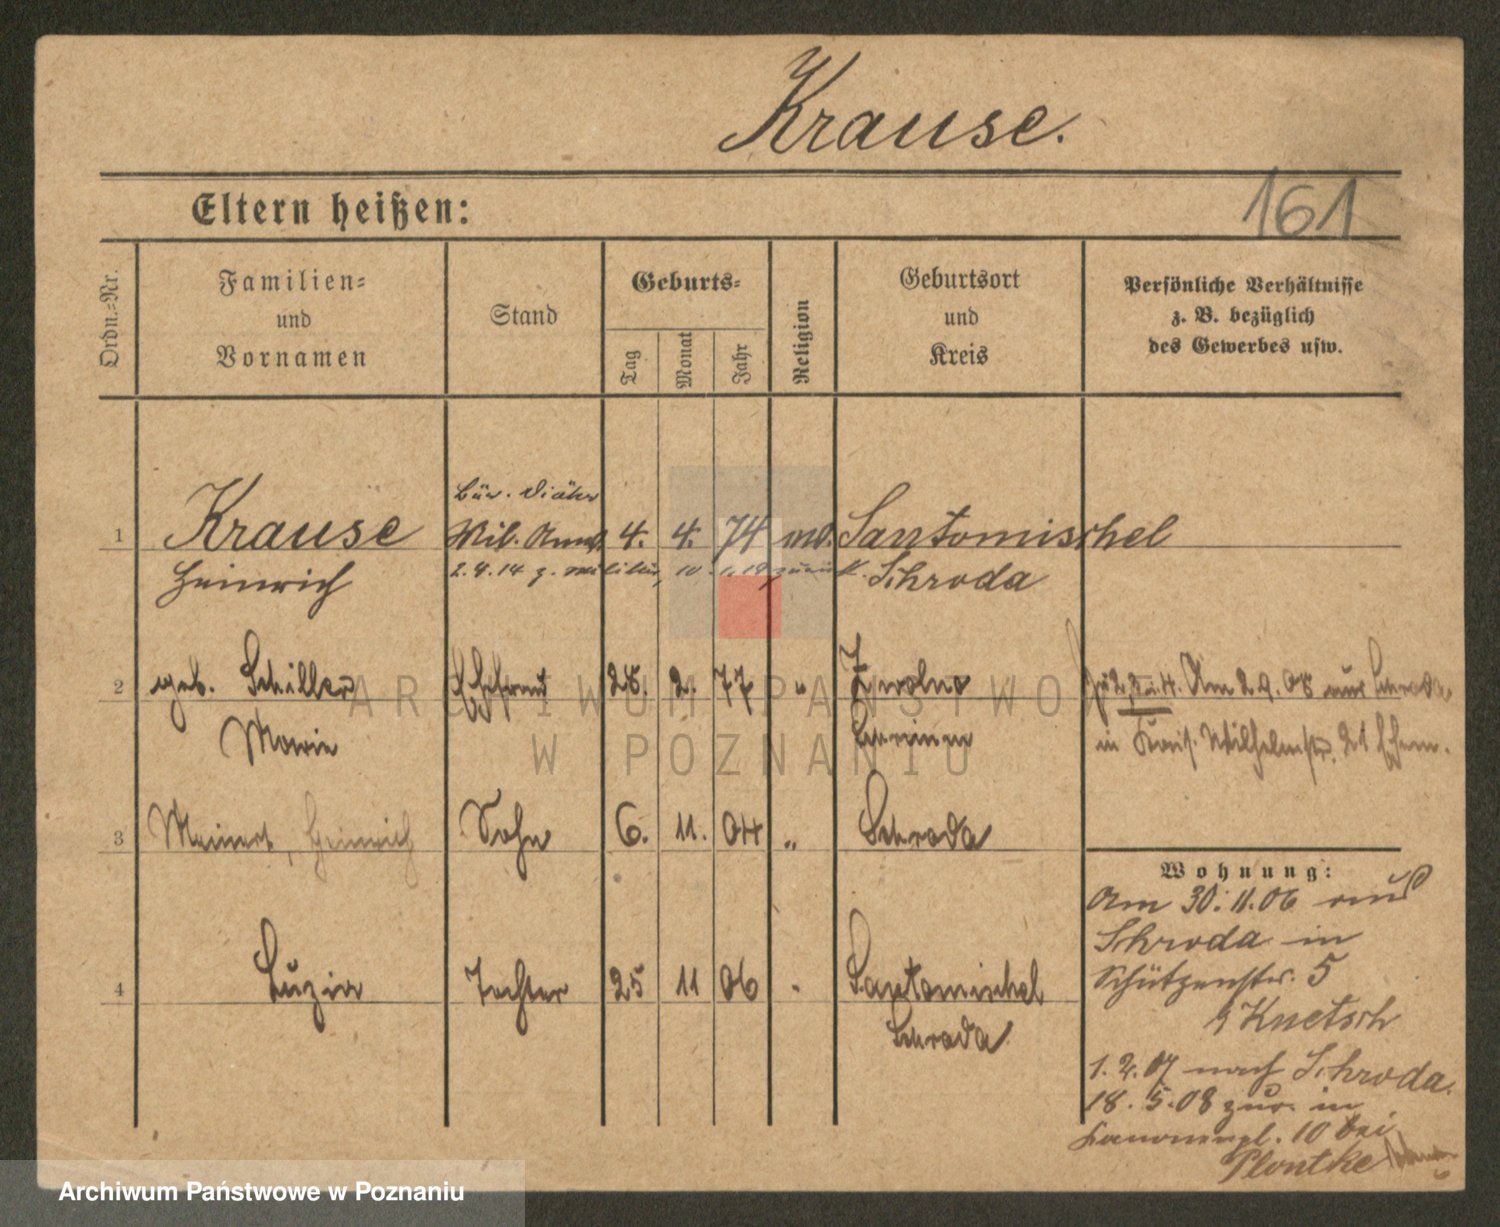 Krause.
161
Eltern heißen:
Ordn.-Nr.
Familien-
und
Vornamen
Stand
Geburts-
Tag
Monat
Jahr
Religion
Geburtsort
und
Kreis
Persönliche Verhältnisse
z. B. bezüglich
des Gewerbes usw.
Bür. Diätar
1 Krause Mil. Anw. 4. 4. 74 Santomischel
Heinrich 2.8.14 z. Militär, 10.1.19 zurück. Schroda
2 geb. Schiller Ehefrau 28. 2. 77 "
Marie
Zu 2, 3 u. 4. Am 2.9.08 aus Schroda
in Wilhelmstr. 21
3 Meinert, Heinrich Sohn 6. 11. 04 " Schroda
Wohnung:
Am 30.11.06 aus
Schroda in
Schützenstr. 5
b/ Knetsch
4 Luzia Tochter 25 11 06 " Santomischel
Schroda
1.2.07 nach Schroda.
18.5.08 zur. in
10 bei
Plontke
ARCHIWUM PAŃSTWOWE
W POZNANIU
Archiwum Państwowe w Poznaniu